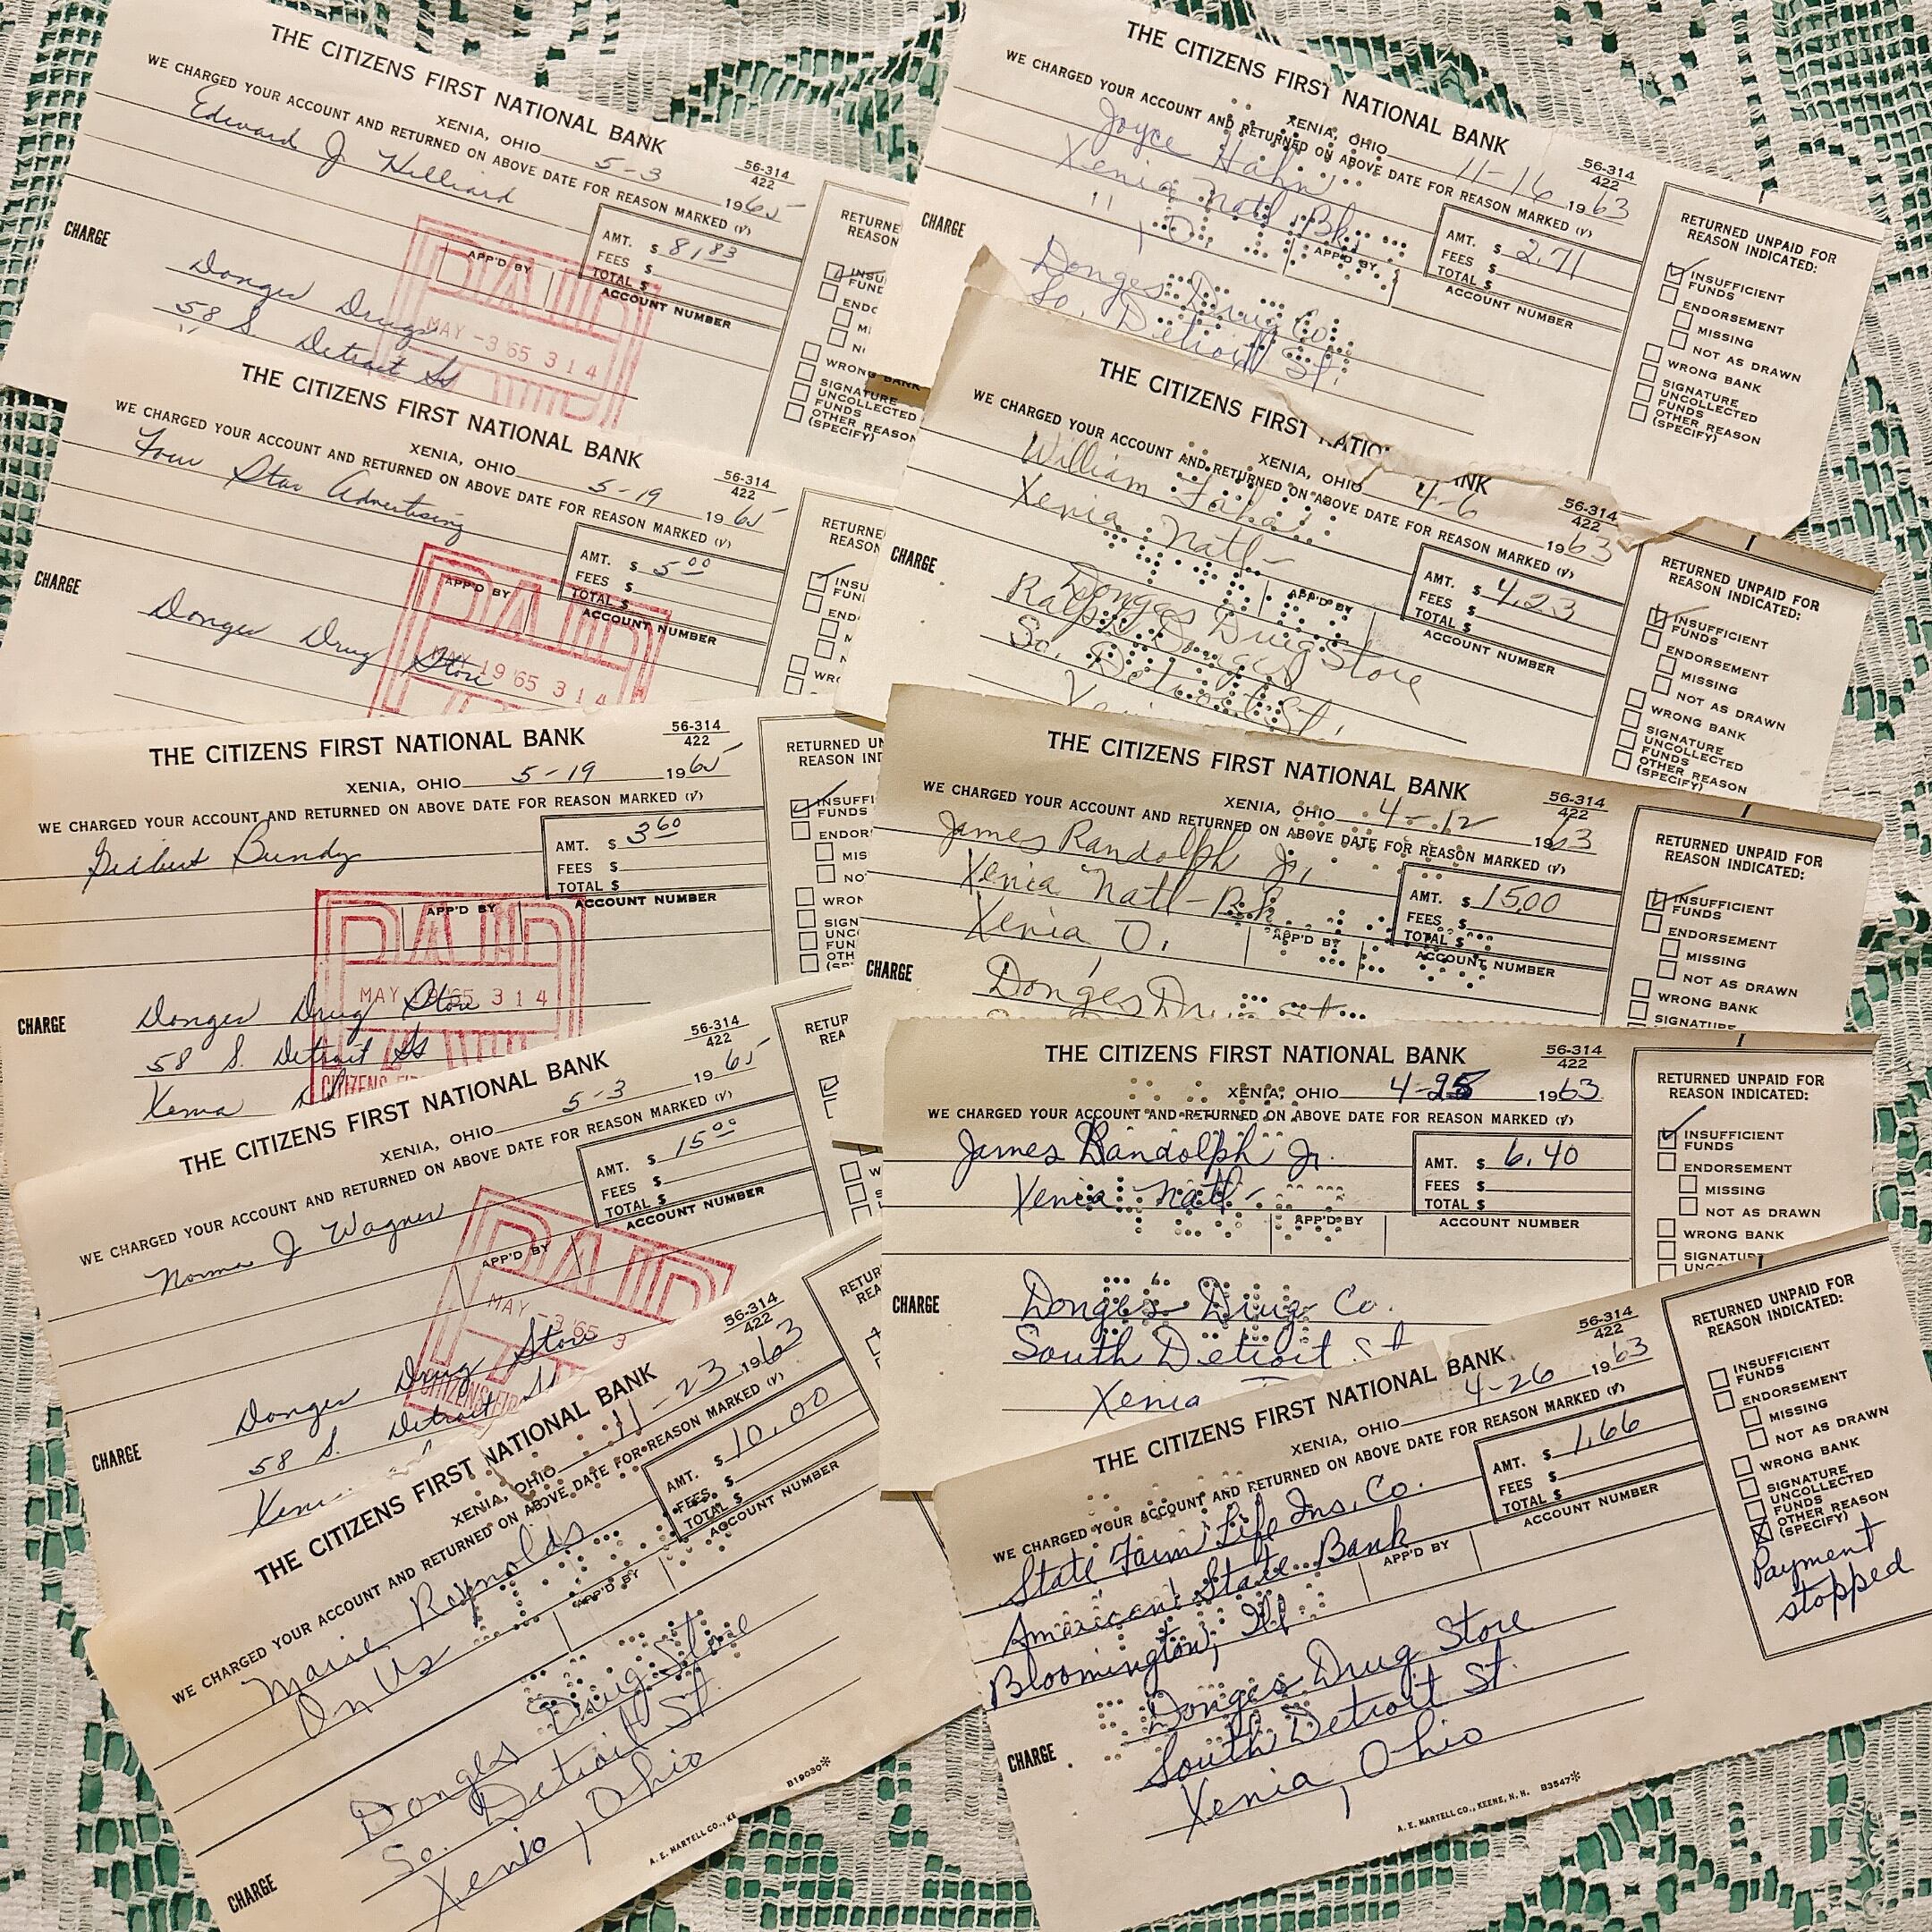 THE CITIZENS FIRST NATIONAL BANK
56-314
422
XENIA, OHIO 5-3 1965
WE CHARGED YOUR ACCOUNT AND RETURNED ON ABOVE DATE FOR REASON MARKED (√)
Edward J Hilliard
AMT. $ 81,83
FEES $
TOTAL $
APP'D BY
ACCOUNT NUMBER
PAID
MAY -3 '65 3 1 4
CHARGE
Donges Drugs
58 S. Detroit St
RETURNED
REASON
INSU
FUND
ENDO
MI
WRONG BANK
SIGNATURE
UNCOLLECTED
FUNDS
OTHER REASON
(SPECIFY)
THE CITIZENS FIRST NATIONAL BANK
56-314
422
XENIA, OHIO 5-19 1965
WE CHARGED YOUR ACCOUNT AND RETURNED ON ABOVE DATE FOR REASON MARKED (√)
Four Star Advertising
AMT. $ 5 00
FEES $
TOTAL $
APP'D BY
ACCOUNT NUMBER
PAID
MAY 19 '65 3 1 4
CHARGE
Donges Drug Store
RETURNE
REASON
INSU
FUN
END
M
WR
THE CITIZENS FIRST NATIONAL BANK
56-314
422
XENIA, OHIO 5-19 1965
WE CHARGED YOUR ACCOUNT AND RETURNED ON ABOVE DATE FOR REASON MARKED (√)
Gilbert Bundy
AMT. $ 3 60
FEES $
TOTAL $
APP'D BY
ACCOUNT NUMBER
PAID
MAY 19 '65 3 1 4
CHARGE
Donges Drug Store
58 S. Detroit St
Xenia
RETURNED UN
REASON IND
INSUFFI
FUNDS
ENDOR
MIS
NO
WRON
SIGN
UNC
FUN
OTH
THE CITIZENS FIRST NATIONAL BANK
56-314
422
XENIA, OHIO 5-3 1965
WE CHARGED YOUR ACCOUNT AND RETURNED ON ABOVE DATE FOR REASON MARKED (√)
Norma J Wagner
AMT. $ 15 00
FEES $
TOTAL $
APP'D BY
ACCOUNT NUMBER
PAID
MAY -3 '65 3
CHARGE
Donges Drug Store
58 S. Detroit St
Xenia
RETUR
REA
THE CITIZENS FIRST NATIONAL BANK
56-314
422
XENIA, OHIO 11-23 1963
WE CHARGED YOUR ACCOUNT AND RETURNED ON ABOVE DATE FOR REASON MARKED (√)
Marie Reynolds
On Us
AMT. $ 10.00
FEES $
TOTAL $
APP'D BY
ACCOUNT NUMBER
CHARGE
Donges Drug Store
So. Detroit St
Xenia, Ohio
A. E. MARTELL CO., KE
B19030*
RETUR
REA
THE CITIZENS FIRST NATIONAL BANK
56-314
422
XENIA, OHIO 11-16 1963
WE CHARGED YOUR ACCOUNT AND RETURNED ON ABOVE DATE FOR REASON MARKED (√)
Joyce Hahn
Xenia Natl Bk.
" , O.
AMT. $ 2.71
FEES $
TOTAL $
APP'D BY
ACCOUNT NUMBER
CHARGE
Donges Drug Co.
So. Detroit St.
RETURNED UNPAID FOR
REASON INDICATED:
INSUFFICIENT
FUNDS
ENDORSEMENT
MISSING
NOT AS DRAWN
WRONG BANK
SIGNATURE
UNCOLLECTED
FUNDS
OTHER REASON
(SPECIFY)
THE CITIZENS FIRST NATIO NK
56-314
422
XENIA, OHIO 4-6 1963
WE CHARGED YOUR ACCOUNT AND RETURNED ON ABOVE DATE FOR REASON MARKED (√)
William
Xenia Natl-
AMT. $ 4.23
FEES $
TOTAL $
APP'D BY
ACCOUNT NUMBER
CHARGE
Donges Drug Store
Ralph Donges
So. Detroit St.
RETURNED UNPAID FOR
REASON INDICATED:
INSUFFICIENT
FUNDS
ENDORSEMENT
MISSING
NOT AS DRAWN
WRONG BANK
SIGNATURE
UNCOLLECTED
FUNDS
OTHER REASON
(SPECIFY)
THE CITIZENS FIRST NATIONAL BANK
56-314
422
XENIA, OHIO 4-12 1963
WE CHARGED YOUR ACCOUNT AND RETURNED ON ABOVE DATE FOR REASON MARKED (√)
James Randolph Jr,
Xenia Natl-Bk.
Xenia, O.
AMT. $ 15.00
FEES $
TOTAL $
APP'D BY
ACCOUNT NUMBER
CHARGE
Donges Drug St
RETURNED UNPAID FOR
REASON INDICATED:
INSUFFICIENT
FUNDS
ENDORSEMENT
MISSING
NOT AS DRAWN
WRONG BANK
SIGNATURE
THE CITIZENS FIRST NATIONAL BANK
56-314
422
XENIA, OHIO 4-25 1963
WE CHARGED YOUR ACCOUNT AND RETURNED ON ABOVE DATE FOR REASON MARKED (√)
James Randolph Jr.
Xenia Natl-
AMT. $ 6.40
FEES $
TOTAL $
APP'D BY
ACCOUNT NUMBER
CHARGE
Donge's Drug Co.
South Detroit St
Xenia
RETURNED UNPAID FOR
REASON INDICATED:
INSUFFICIENT
FUNDS
ENDORSEMENT
MISSING
NOT AS DRAWN
WRONG BANK
SIGNATUR
THE CITIZENS FIRST NATIONAL BANK
56-314
422
XENIA, OHIO 4-26 1963
WE CHARGED YOUR ACCOUNT AND RETURNED ON ABOVE DATE FOR REASON MARKED (√)
State Farm Life Ins. Co.
American State Bank
Bloomington, Ill
AMT. $ 1.66
FEES $
TOTAL $
APP'D BY
ACCOUNT NUMBER
CHARGE
Donges Drug Store
South Detroit St.
Xenia, Ohio
A. E. MARTELL CO., KEENE, N. H. B3547*
RETURNED UNPAID FOR
REASON INDICATED:
INSUFFICIENT
FUNDS
ENDORSEMENT
MISSING
NOT AS DRAWN
WRONG BANK
SIGNATURE
UNCOLLECTED
FUNDS
OTHER REASON
(SPECIFY)
Payment
stopped